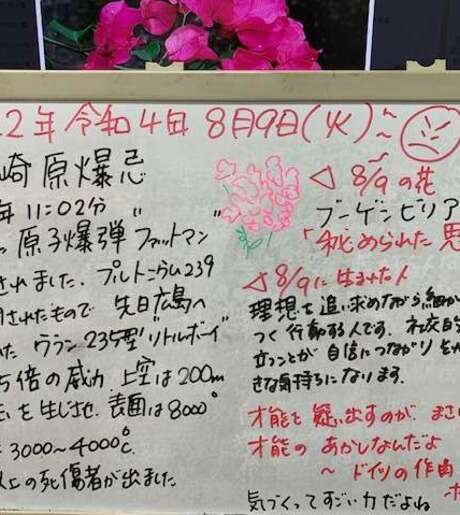 2年 令和4年 8月9日(火)
崎原爆忌
年 11:02分
原子爆弾 "ファットマン"
されました。プルトニウム239
されたもので 先日広島へ
た ウラン235型 "リトルボーイ"
5倍の威力 上空は200m
を生じさせ 表面は8000°
3000〜4000℃
以上の死傷者が出ました
◁ 8/9の花
ブーゲンビリア
「秘められた思
◁ 8/9に生まれた人
理想を追い求めながら細か
つく行動する人です。社交的
立つことが自信につながり
きな気持ちになります。
才能を疑い出すのが、まさ
才能の あかしなんだよ
〜 ドイツの作曲
気づくってすごい力だよね